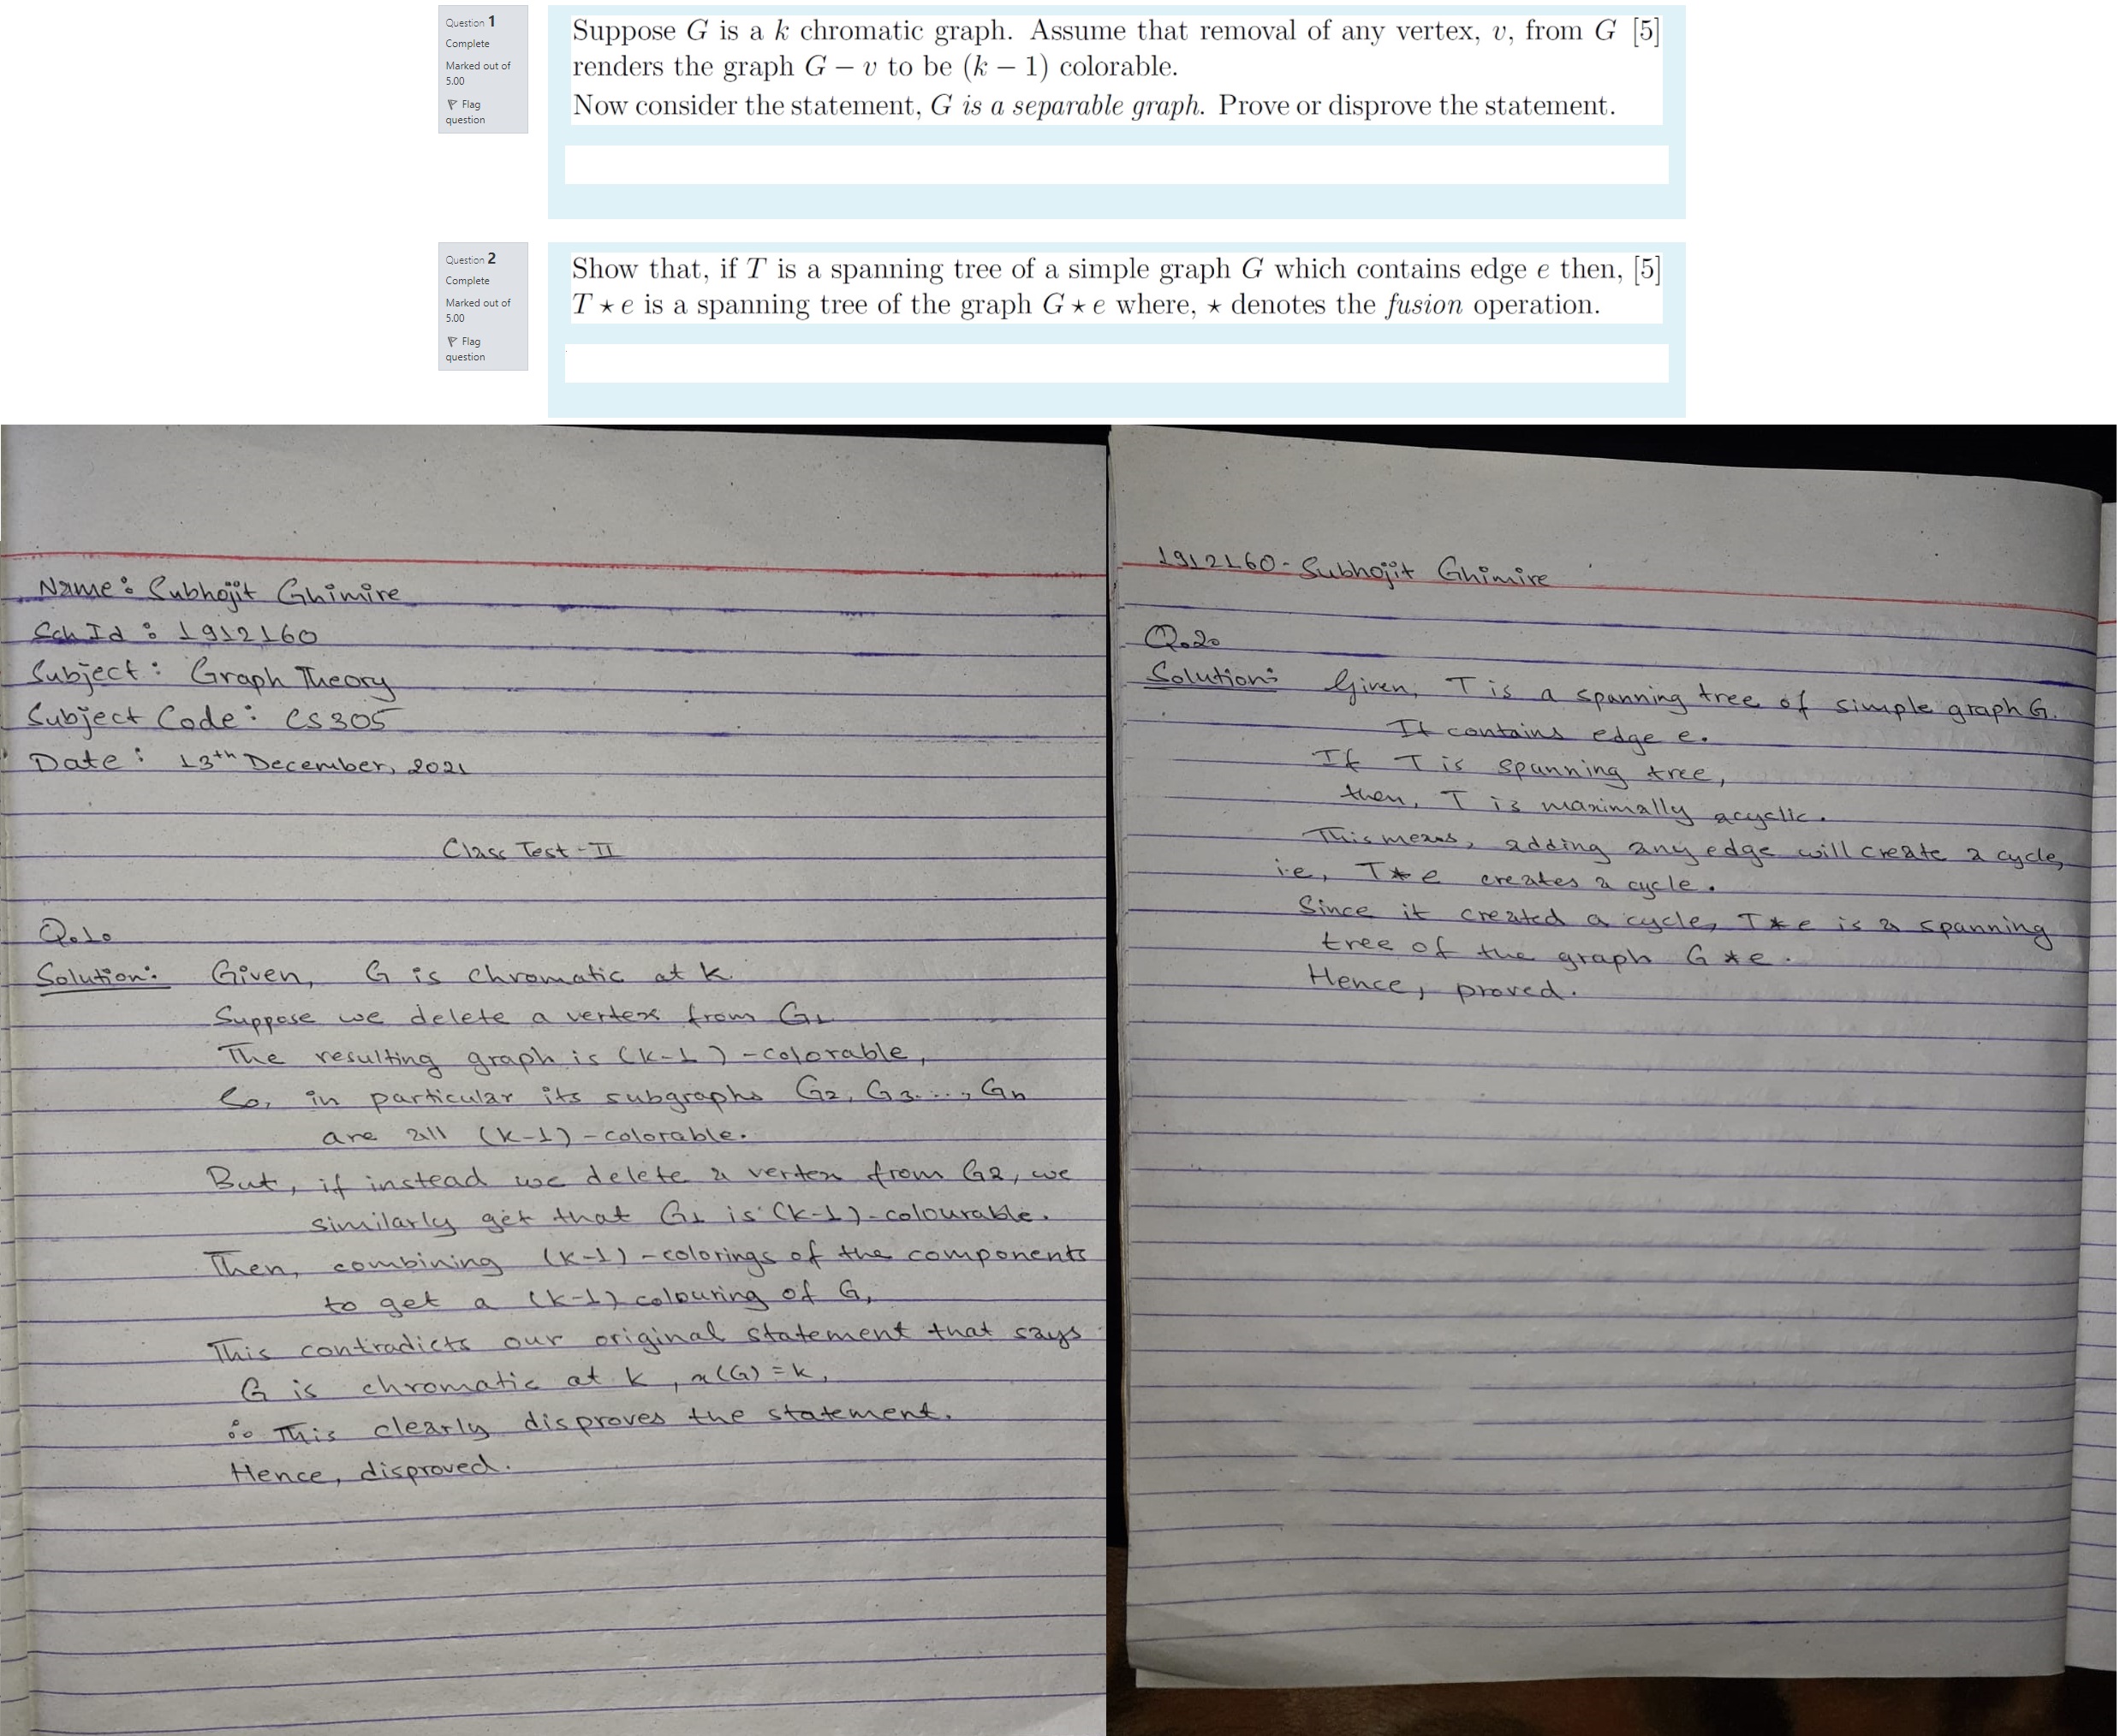 Question 1
Complete
Marked out of
5.00
Flag
question
Suppose G is a k chromatic graph. Assume that removal of any vertex, v, from G [5]
renders the graph G − v to be (k − 1) colorable.
Now consider the statement, G is a separable graph. Prove or disprove the statement.
Question 2
Complete
Marked out of
5.00
Flag
question
Show that, if T is a spanning tree of a simple graph G which contains edge e then, [5]
T ⋆ e is a spanning tree of the graph G ⋆ e where, ⋆ denotes the fusion operation.
Name: Subhojit Ghimire
Sch Id : 1912160
Subject: Graph Theory
Subject Code: CS305
Date: 13th December, 2021
Class Test - II
Q.1.
Solution: Given, G is chromatic at k.
Suppose we delete a vertex from G1
The resulting graph is (k-1)-colorable,
So, in particular its subgraphs G2, G3..., Gn
are all (k-1)-colorable.
But, if instead we delete a vertex from G2, we
similarly get that G1 is (k-1)-colourable.
Then, combining (k-1)-colorings of the components
to get a (k-1) colouring of G,
This contradicts our original statement that says
G is chromatic at k, x(G) = k,
∴ This clearly disproves the statement.
Hence, disproved.
1912160 - Subhojit Ghimire
Q.2.
Solution: Given, T is a spanning tree of simple graph G.
It contains edge e.
If T is spanning tree,
then, T is maximally acyclic.
This means, adding any edge will create a cycle,
i.e, T*e creates a cycle.
Since it created a cycle, T*e is a spanning
tree of the graph G*e.
Hence, proved.